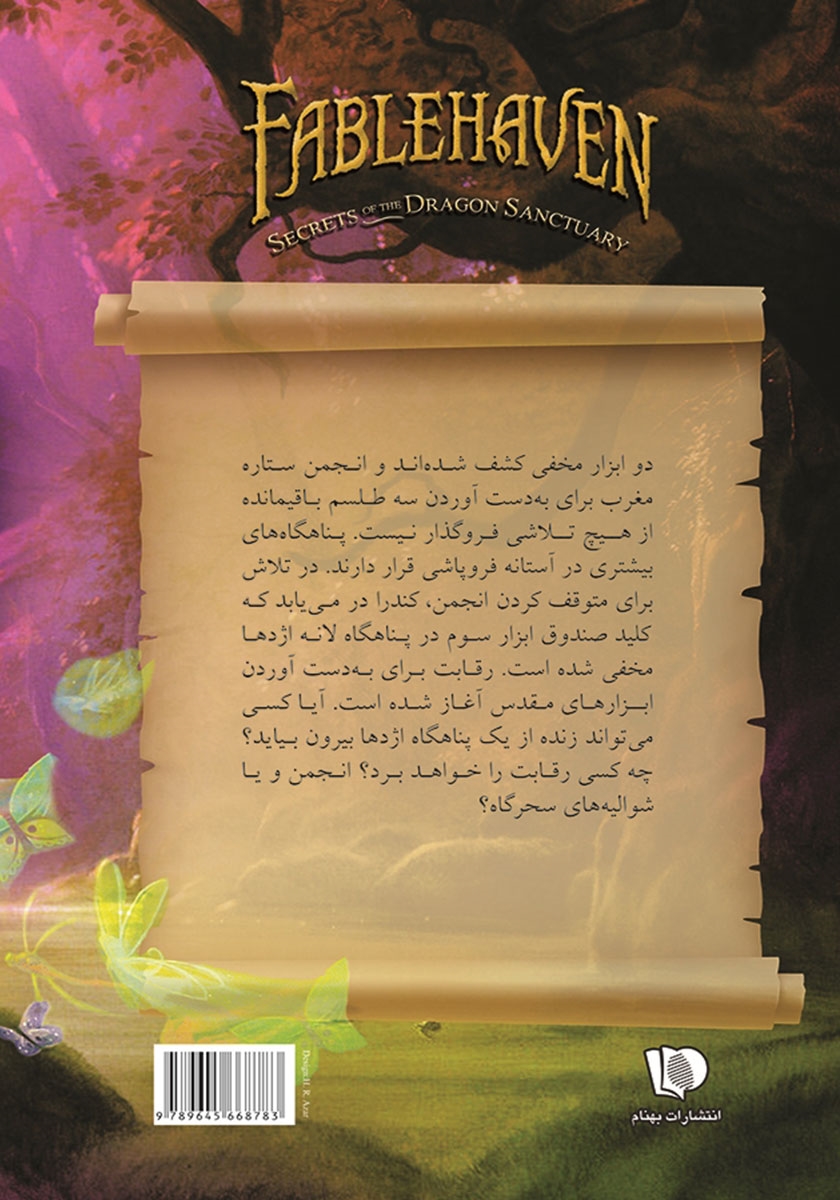 FABLEHAVEN
SECRETS OF THE DRAGON SANCTUARY
دو ابزار مخفی کشف شده‌اند و انجمن ستاره
مغرب برای به‌دست آوردن سه طلسم باقیمانده
از هیچ تلاشی فروگذار نیست. پناهگاه‌های
بیشتری در آستانه فروپاشی قرار دارند. در تلاش
برای متوقف کردن انجمن، کندرا در می‌یابد که
کلید صندوق ابزار سوم در پناهگاه لانه اژدها
مخفی شده است. رقابت برای به‌دست آوردن
ابزارهای مقدس آغاز شده است. آیا کسی
می‌تواند زنده از یک پناهگاه اژدها بیرون بیاید؟
چه کسی رقابت را خواهد برد؟ انجمن و یا
شوالیه‌های سحرگاه؟
Design:H. R. Azar
9 789645 668783
انتشارات بهنام